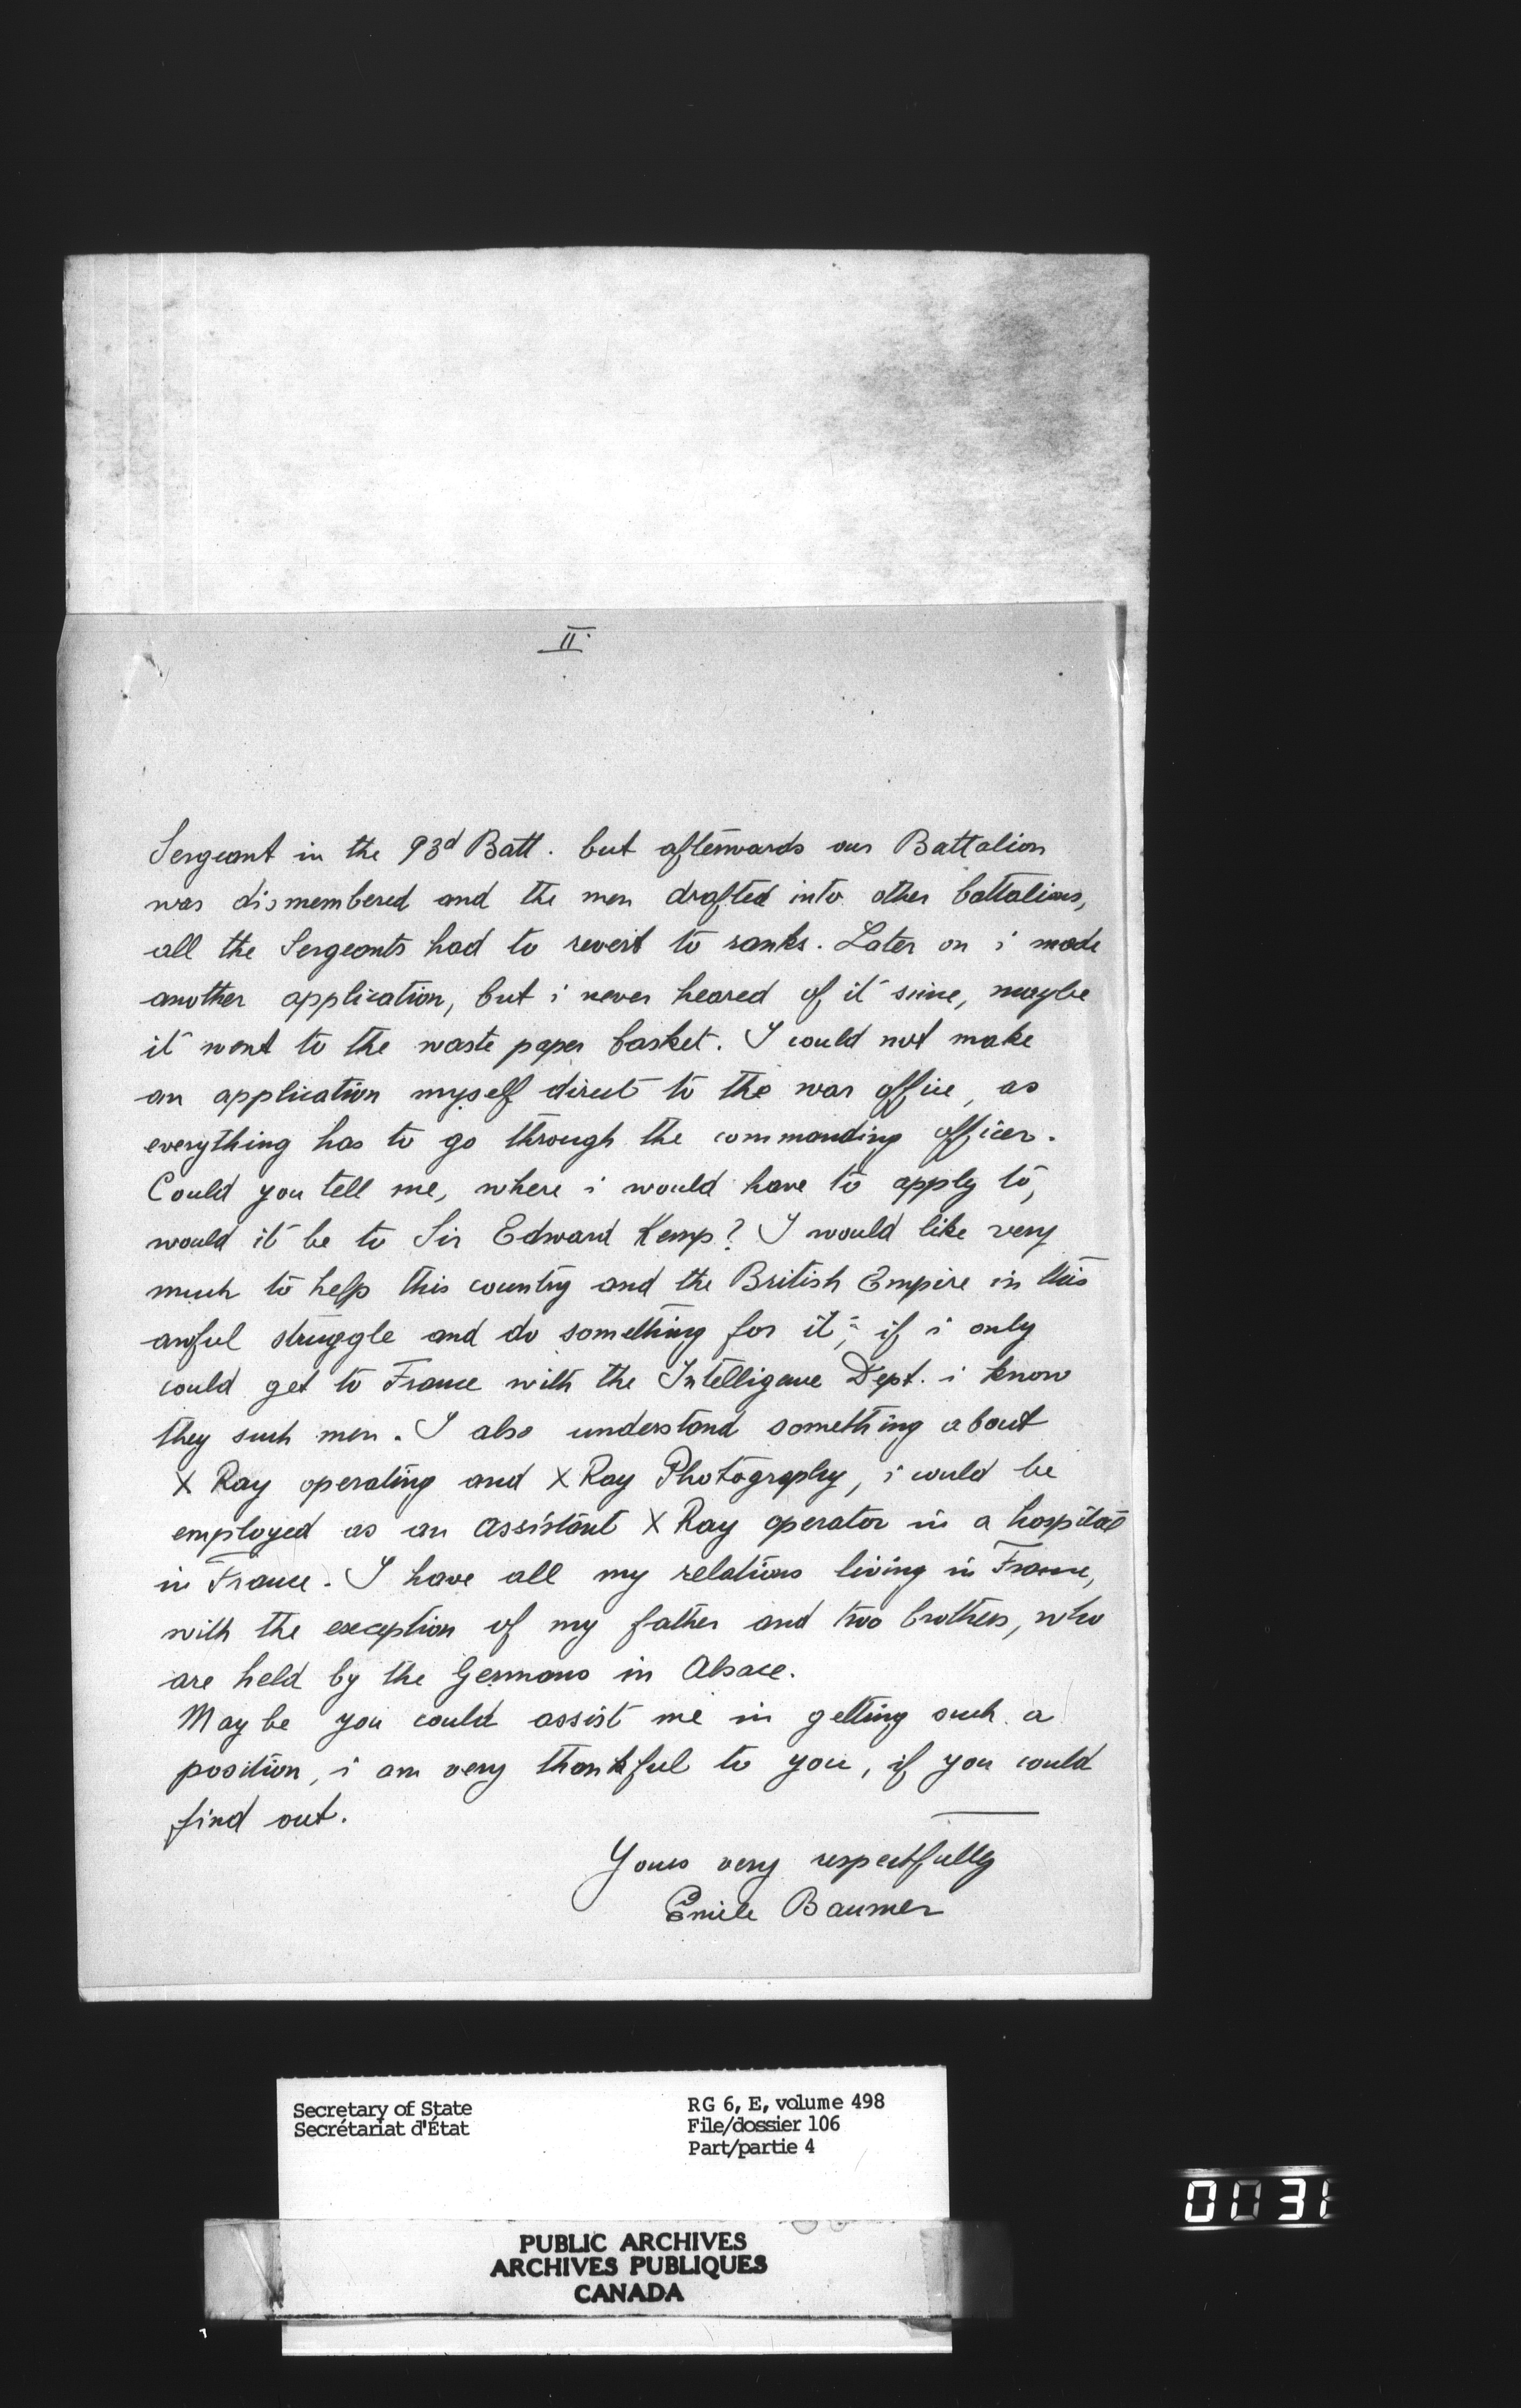 II.
Sergeant in the 93d Batt. but afterwards our Battalion
was dismembered and the men drafted into other battalions,
all the Sergeants had to revert to ranks. Later on i made
another application, but i never heared of it since, maybe
it went to the waste paper basket. I could not make
an application myself direct to the war office, as
everything has to go through the commanding officer.
Could you tell me, where i would have to apply to,
would it be to Sir Edward Kemp? I would like very
much to help this country and the British Empire in this
awful struggle and do something for it; if i only
could get to France with the Intelligence Dept. i know
they such men. I also understand something about
X Ray operating and X Ray Photography, i could be
employed as an assistant X Ray operator in a hospital
in France. I have all my relations living in France,
with the exception of my father and two brothers, who
are held by the Germans in Alsace.
May be you could assist me in getting such a
position, i am very thankful to you, if you could
find out.
Yours very respectfully
Emile Baumer
Secretary of State
Secrétariat d'État
RG 6, E, volume 498
File/dossier 106
Part/partie 4
PUBLIC ARCHIVES
ARCHIVES PUBLIQUES
CANADA
0031